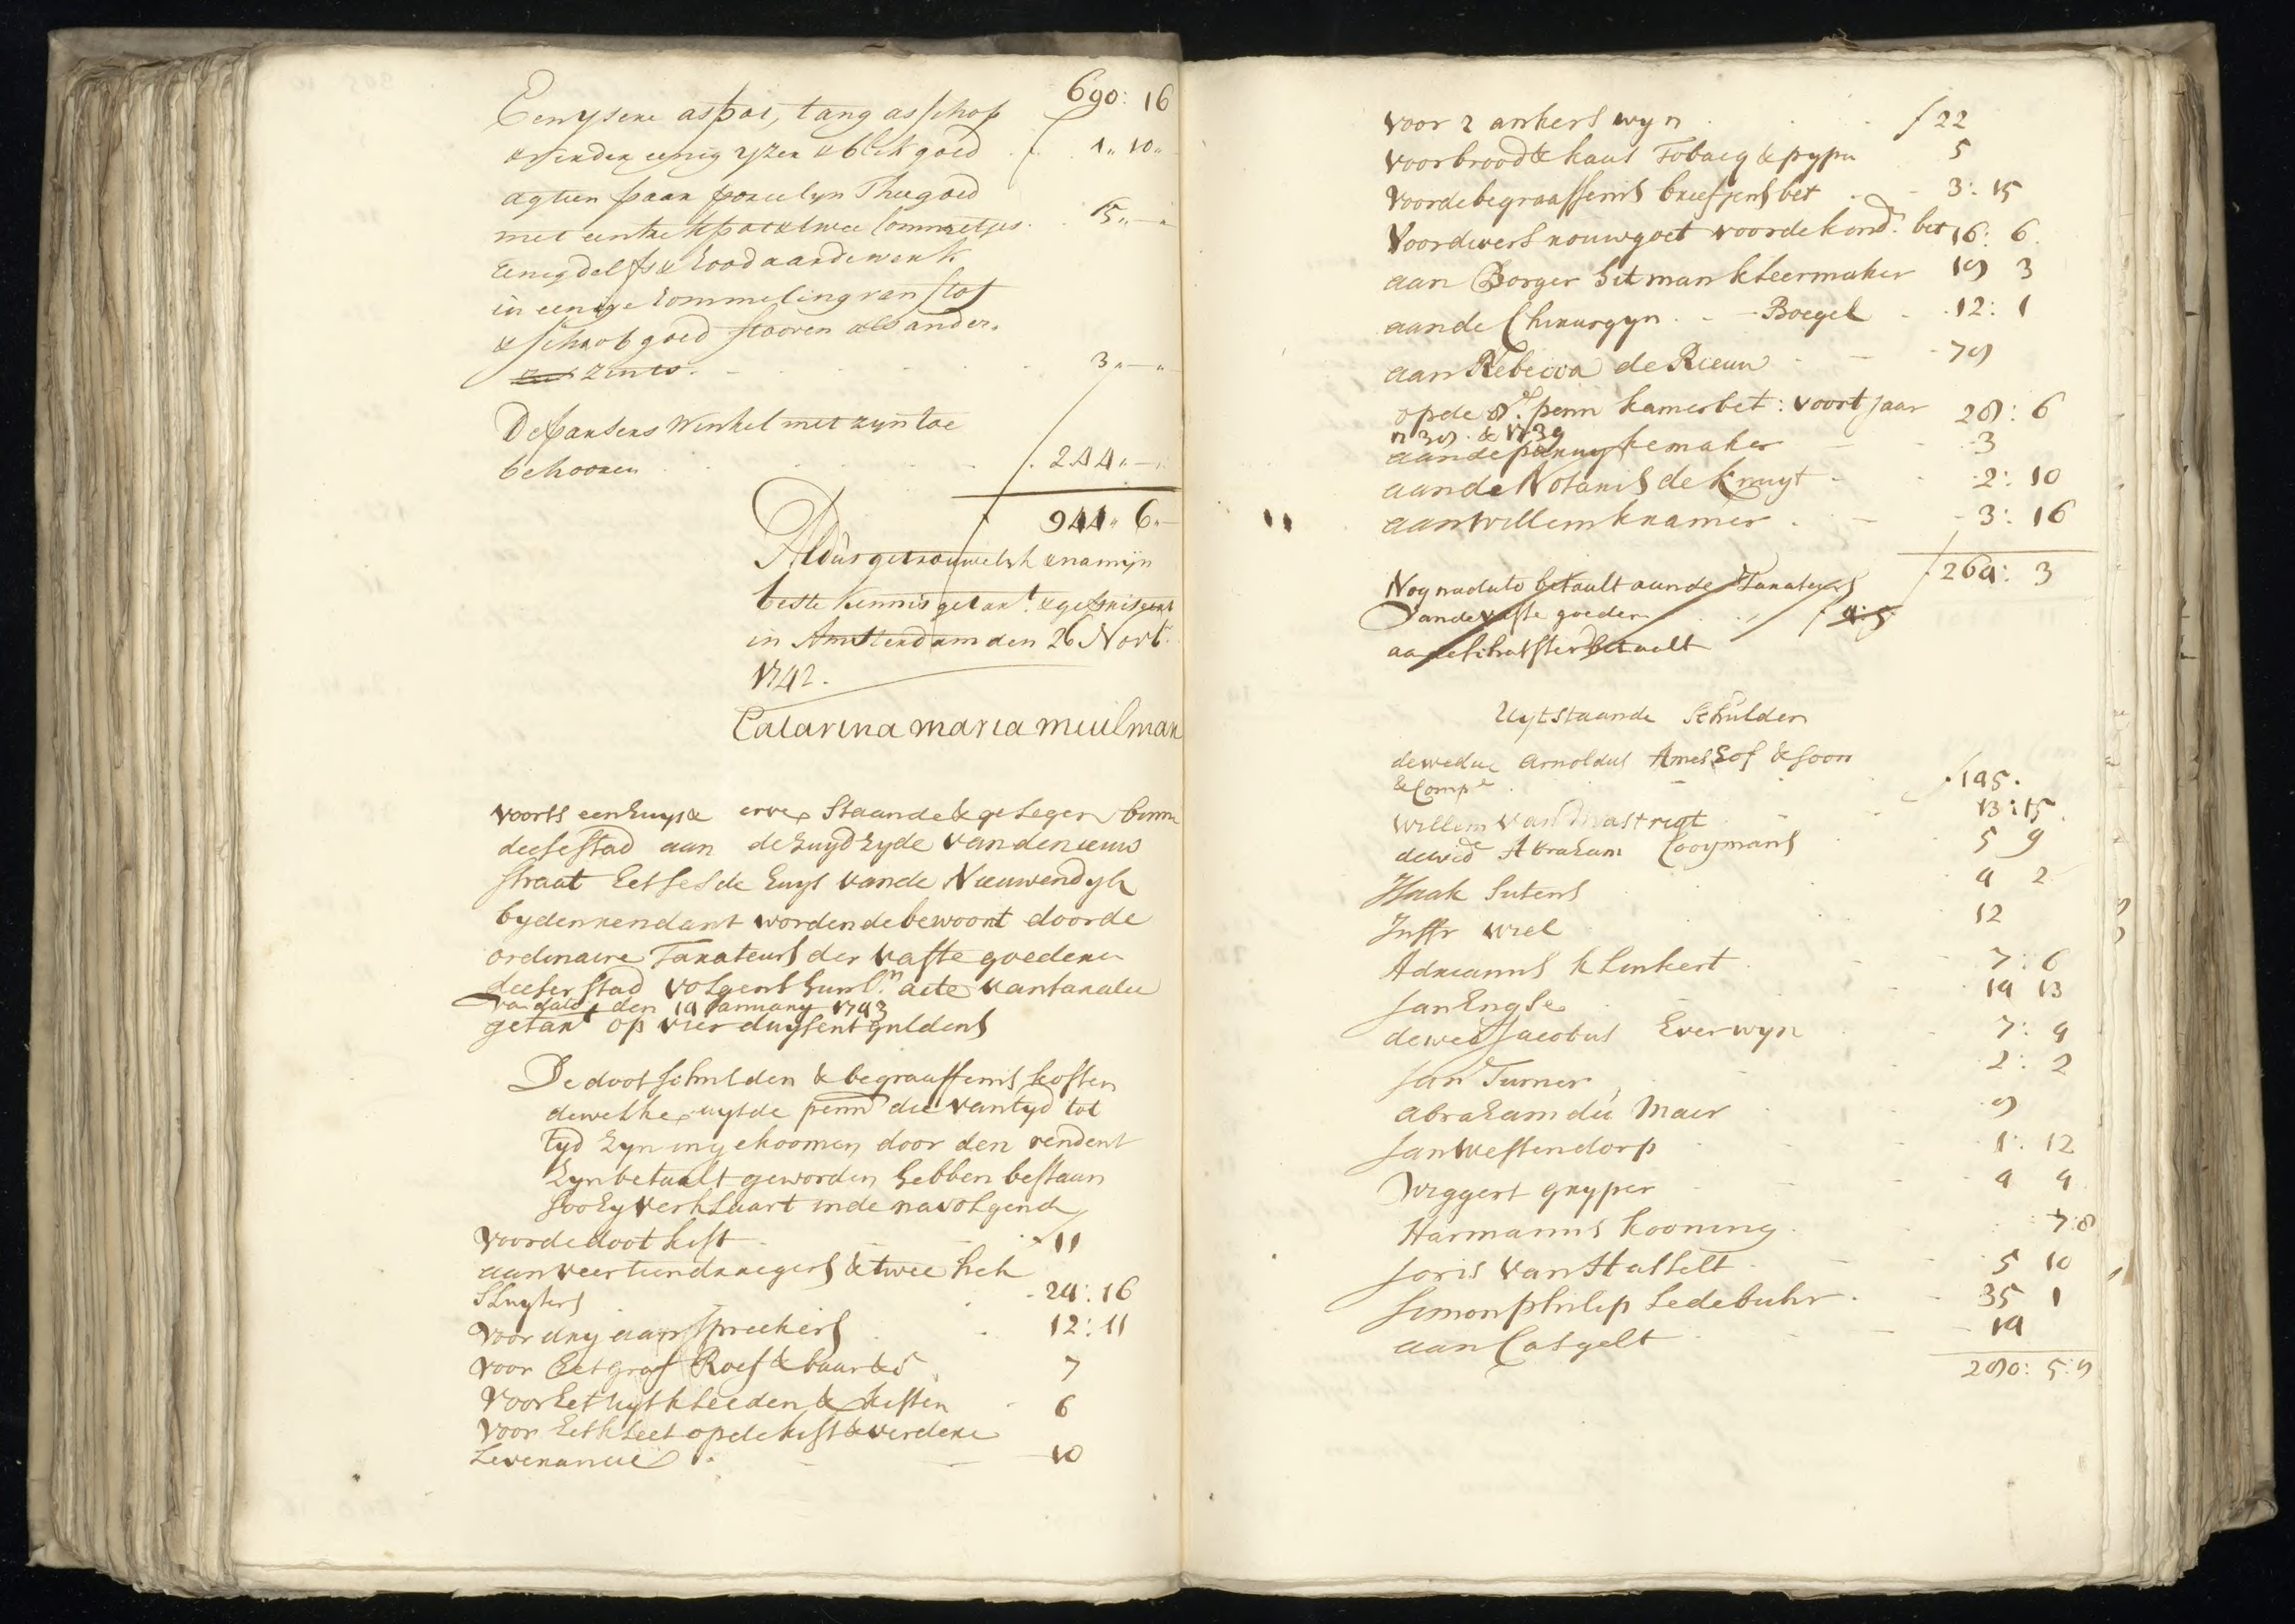 690: 16
Een ysere aspot, tang asschop
& vinden eenig yzer & blik goed f 1,, 10,,
agtien paar porcelyn Theegoed
met een trekpot & twee Commetjes 5,,—,,
Eenig delfs & Rood aardewerk
in eenige rommeling van stof
& schrobgoed stooven als ander,
zints. 3,,—,,
De parsers Winkel met zyn toe
behooren 244,,—,,
944,, 6,,—
Aldus getrouwelyk & na mijn
beste kennis getaxt. & gepriseert
in Amsterdam den 26 Novb.
1742.
Catarina maria meulman
voorts een huys & erve staande & gelegen binne
deese stad aan de Zuydzyde van de nieuwe
straat het sesde huys van de Nieuwendyk
by den rendant wordende bewoont door de
ordinaire Taxateurs der vaste goederen
deeser stad volgens hunl. acte van taxatie
van dato den 19 January 1743
getaxt op vier duysent guldens
De dootschulden & begraaffenis kosten
dewelke uyt de penn die van tyd tot
tyd zyn ingekoomen door den rendent
zyn betaalt geworden hebben bestaan
soo hy verklaart in de navolgende
voor de doot kist f 11
aan veertien dragers & twee hek
sluyters 24: 16
voor dry aanspreekers 12: 11
voor het graf Roef & baar &c 7
voor het uytkleeden & kisten 6
voor het kleet op de kist & verdere
Leverancie 10
voor 2 ankers wyn f 22
voor brood & kaas Tobacq & pypen 5
voor de begraaffenis briefjens bet 3: 15
voor divers rouwgoet voor de kind. bet 16: 6
aan Borger Sitman kleermaker 19 3
aan de Chirurgyn Boegel 12: 1
aan Rebecca de Rieun 79
op de 8e. penn kamer bet: voort jaar 28: 6
1738 & 1739
aan de paruykemaker 3
aan de Notaris de Kruyt 2: 10
aan Willem kramer 3: 16
f 264: 3
Nog na dato betaalt aan de Taxateurs
van de vaste goeder f 4:5
aan de schatster betaelt
Uytstaande Schulden
de weduwe Arnoldus Ameshof & soon
& Compe f 145.
Willem van Mastrigt 13: 15
de wede Abraham Cooymans 5 9
Isaak Sutens 4 2
Juffr Wiel 12
Adrianus Klinkert 7: 6
Jan Engse 14 13
de wed Jacobus Everwyn 7: 4
Jan Turner 2: 2
Abraham du Mair 9
Jan Westendorp 1: 12
Wiggert gryper 4 4
Harmanus kooning 7:8
Joris van Hasselt 5 10
Simon philip Ledebuhr 35 1
aan Casgelt 14
280: 5: 8